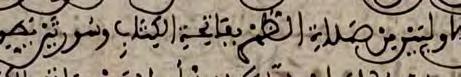 الاوليين من صلاة الظهر بفاتحة الكتاب وسورتين يطو